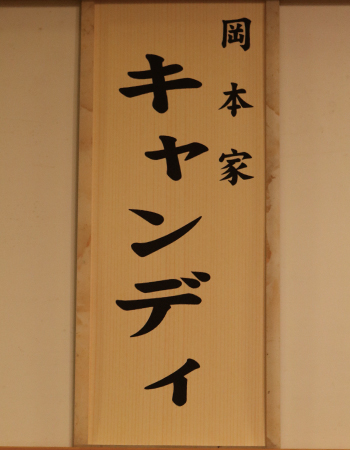 岡本家
キャンディ